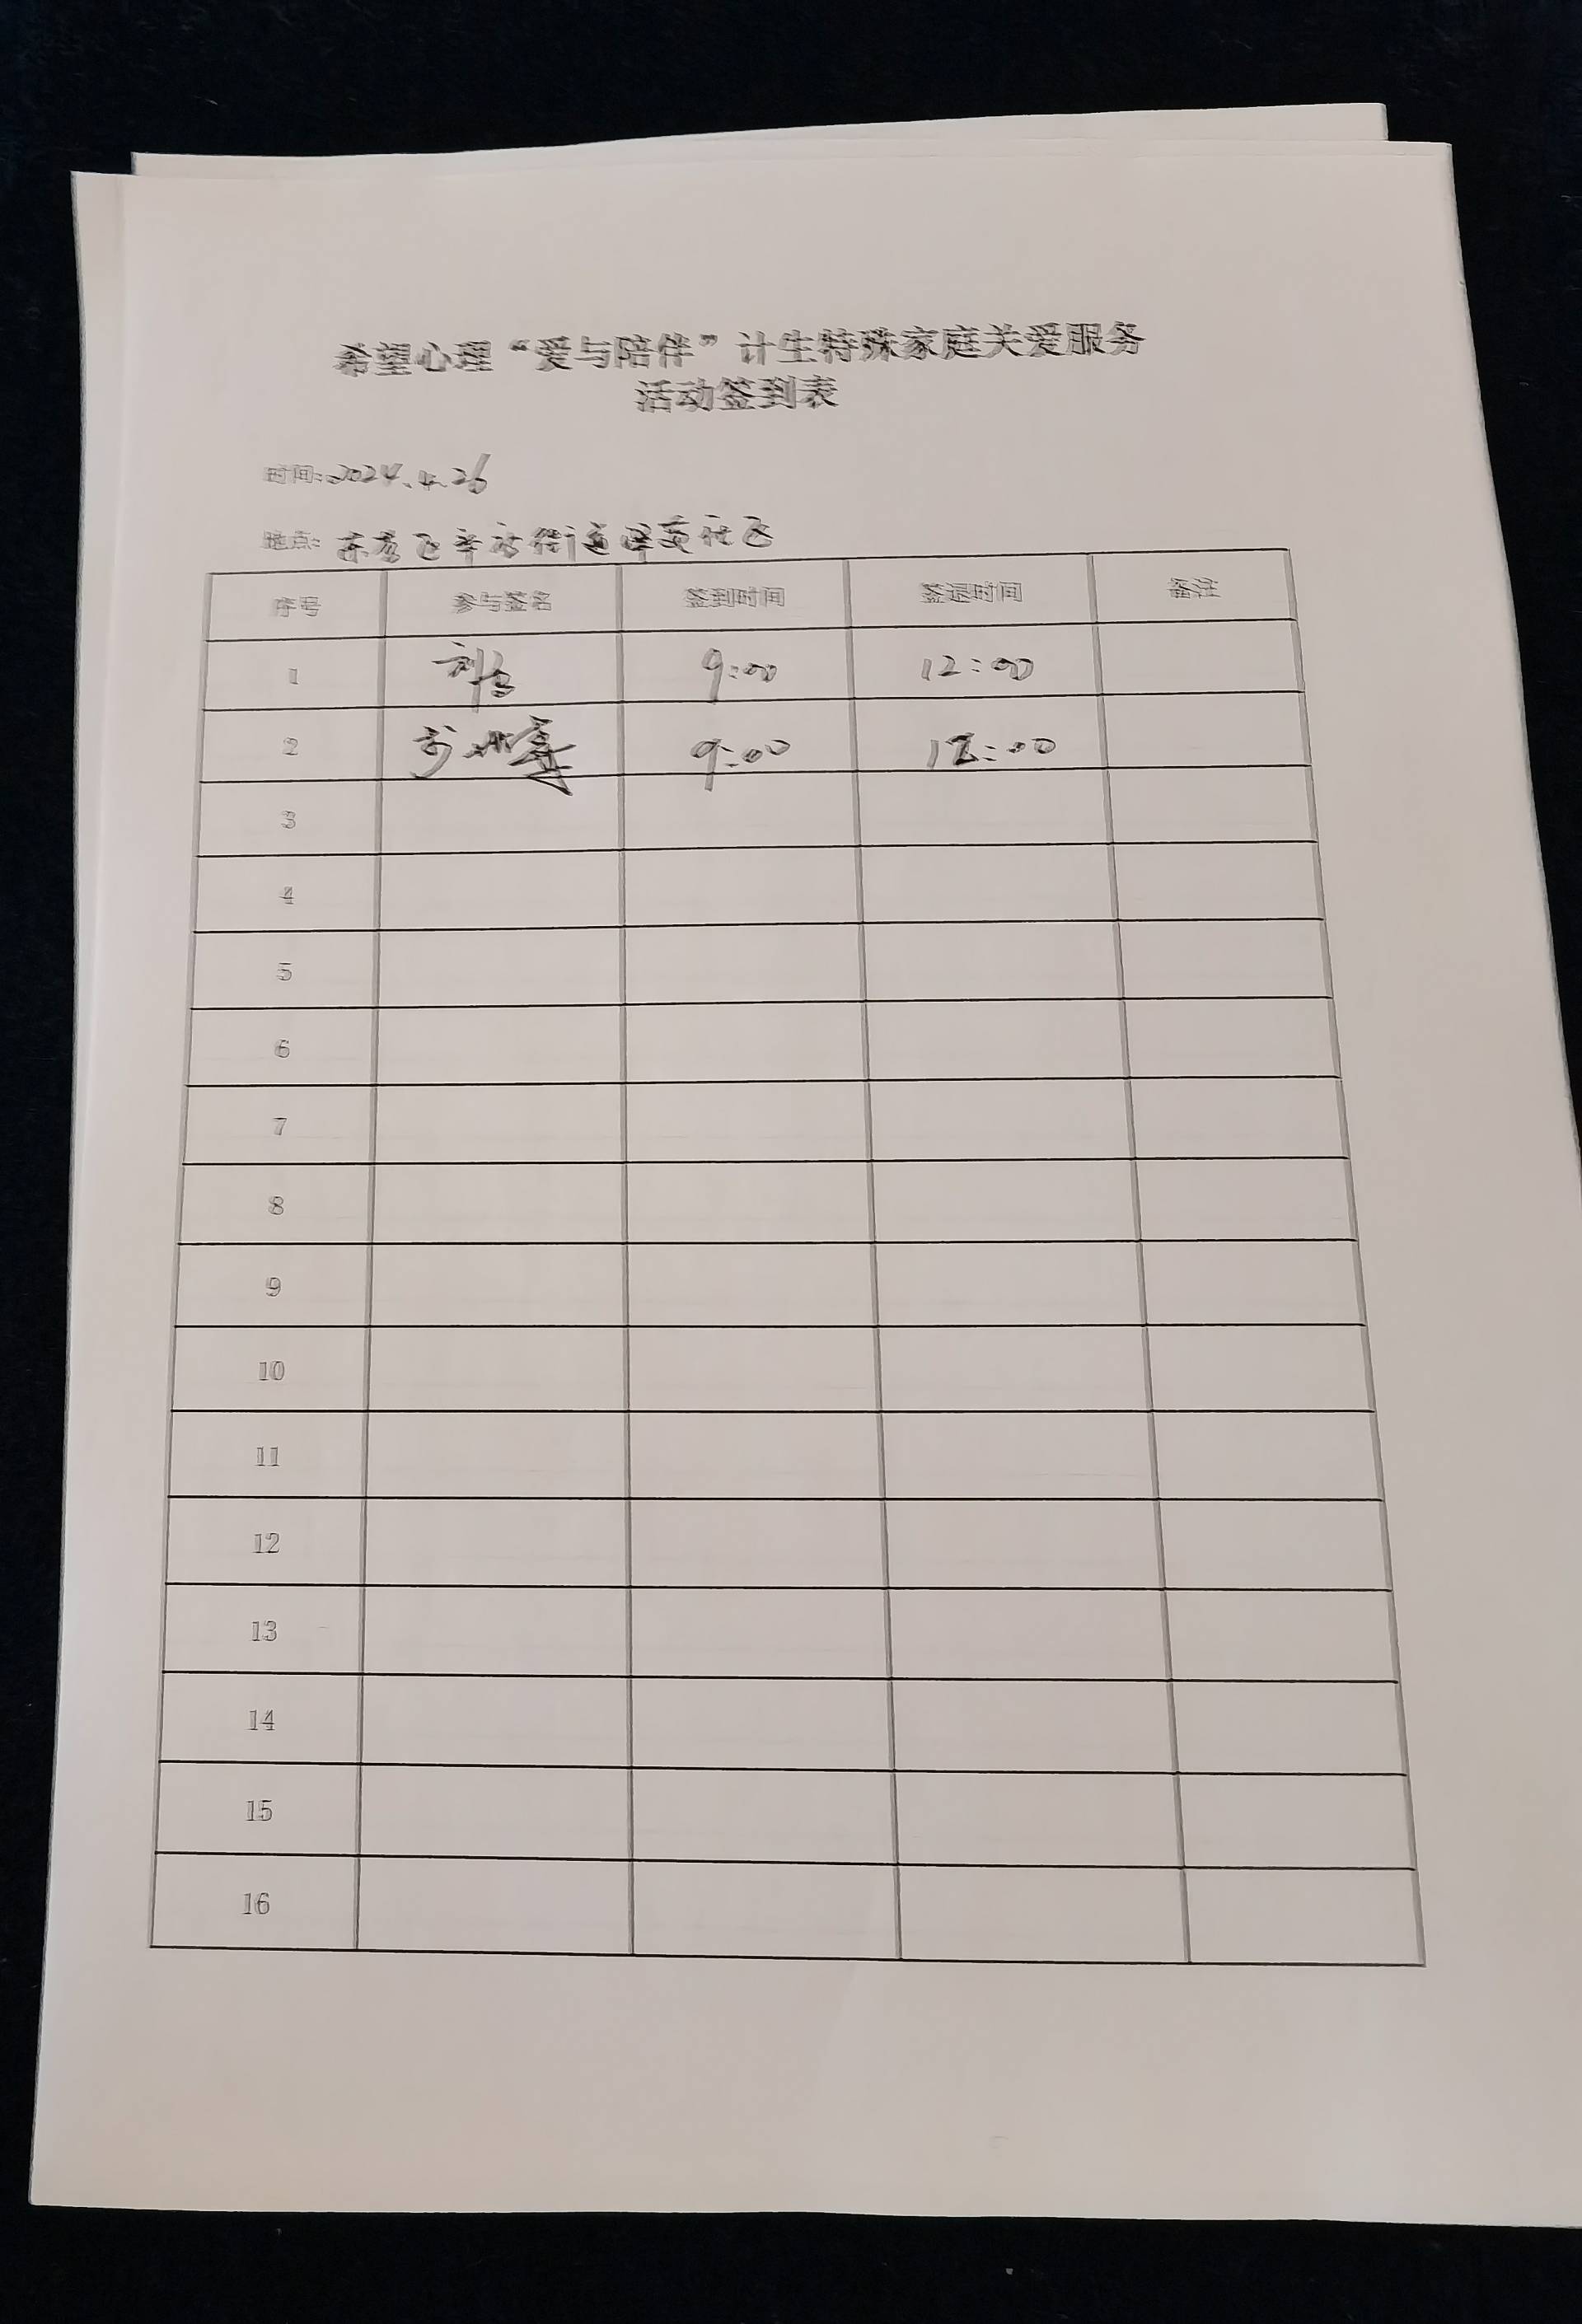 希望心理“爱与陪伴”计生特殊家庭关爱服务
活动签到表
时间:2024.4.26
地点: 东秦区辛店街道 社区
序号 参与签名 签到时间 签退时间 备注
1 9:00 12:00
2 9:00 12:00
3
4
5
6
7
8
9
10
11
12
13
14
15
16